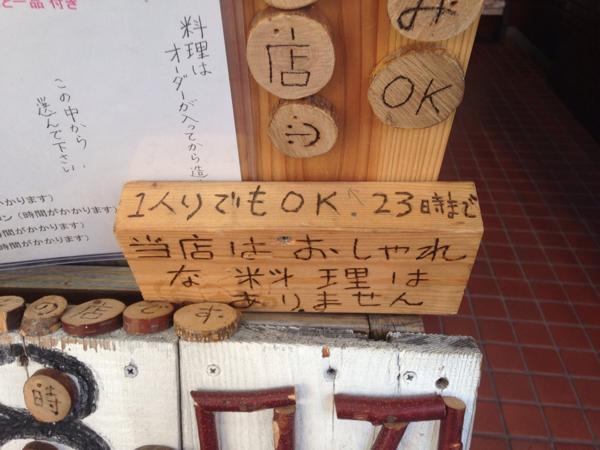 と一品 付き
料理は
オーダーが入ってから造
この中から
選んで下さい
かかります)
ン(時間がかかります)
時間がかかります)
時間がかかります)
店
み
OK
1人りでもOK. 23時まで
当店はおしゃれ
な料理は
ありません
の店です
時